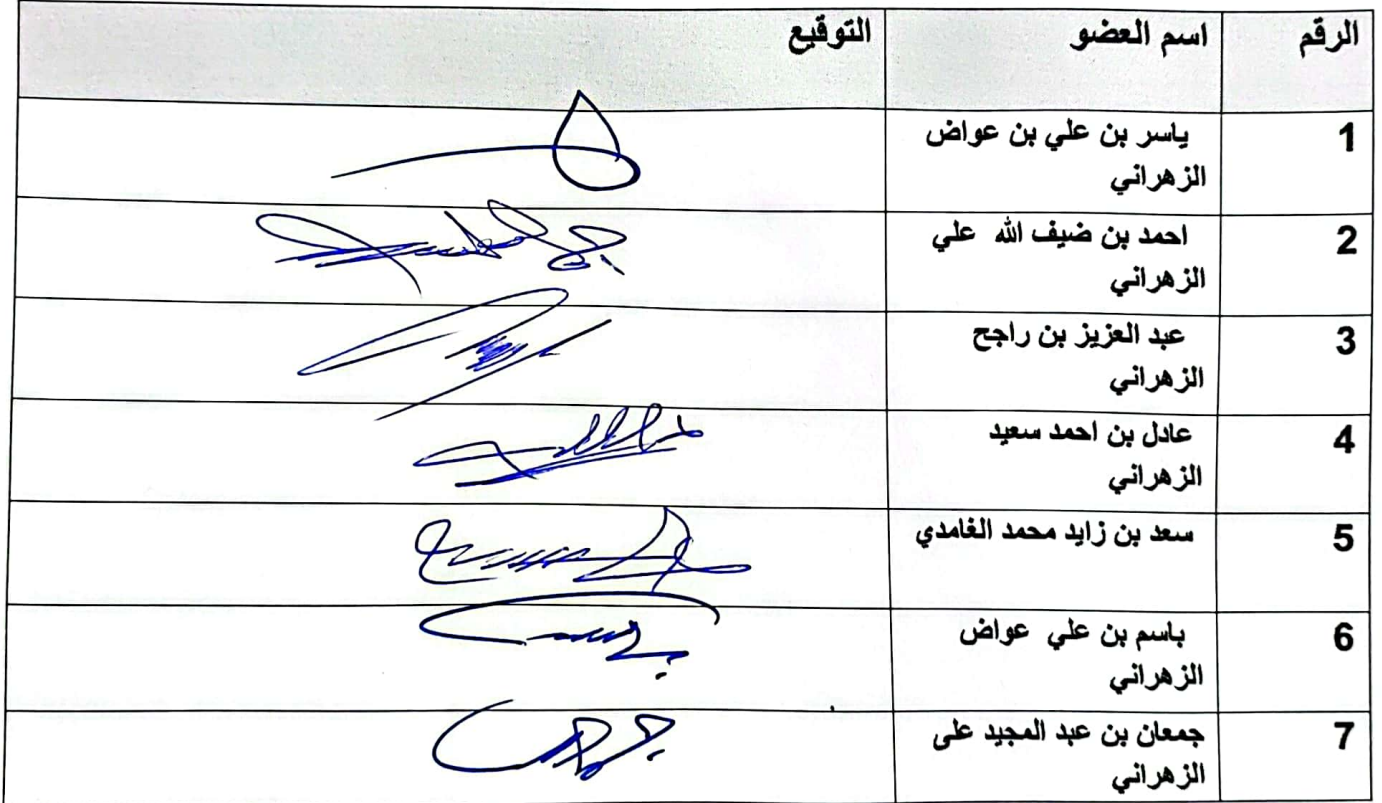 الرقم اسم العضو التوقيع
1 ياسر بن علي بن عواض
الزهراني
2 احمد بن ضيف الله علي
الزهراني
3 عبد العزيز بن راجح
الزهراني
4 عادل بن احمد سعيد
الزهراني
5 سعد بن زايد محمد الغامدي
6 باسم بن علي عواض
الزهراني
7 جمعان بن عبد المجيد على
الزهراني